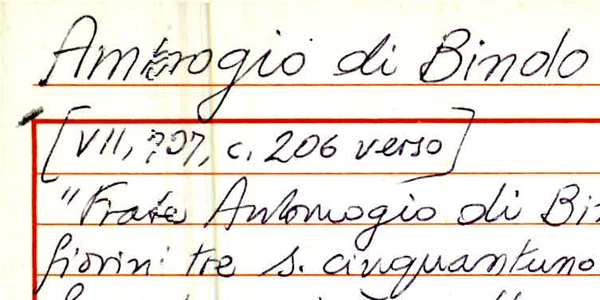 Ambrogio di Bindo
[VII, 707, c. 206 verso]
"Frate Antomogio di Bin
fiorini tre s. cinquantuno